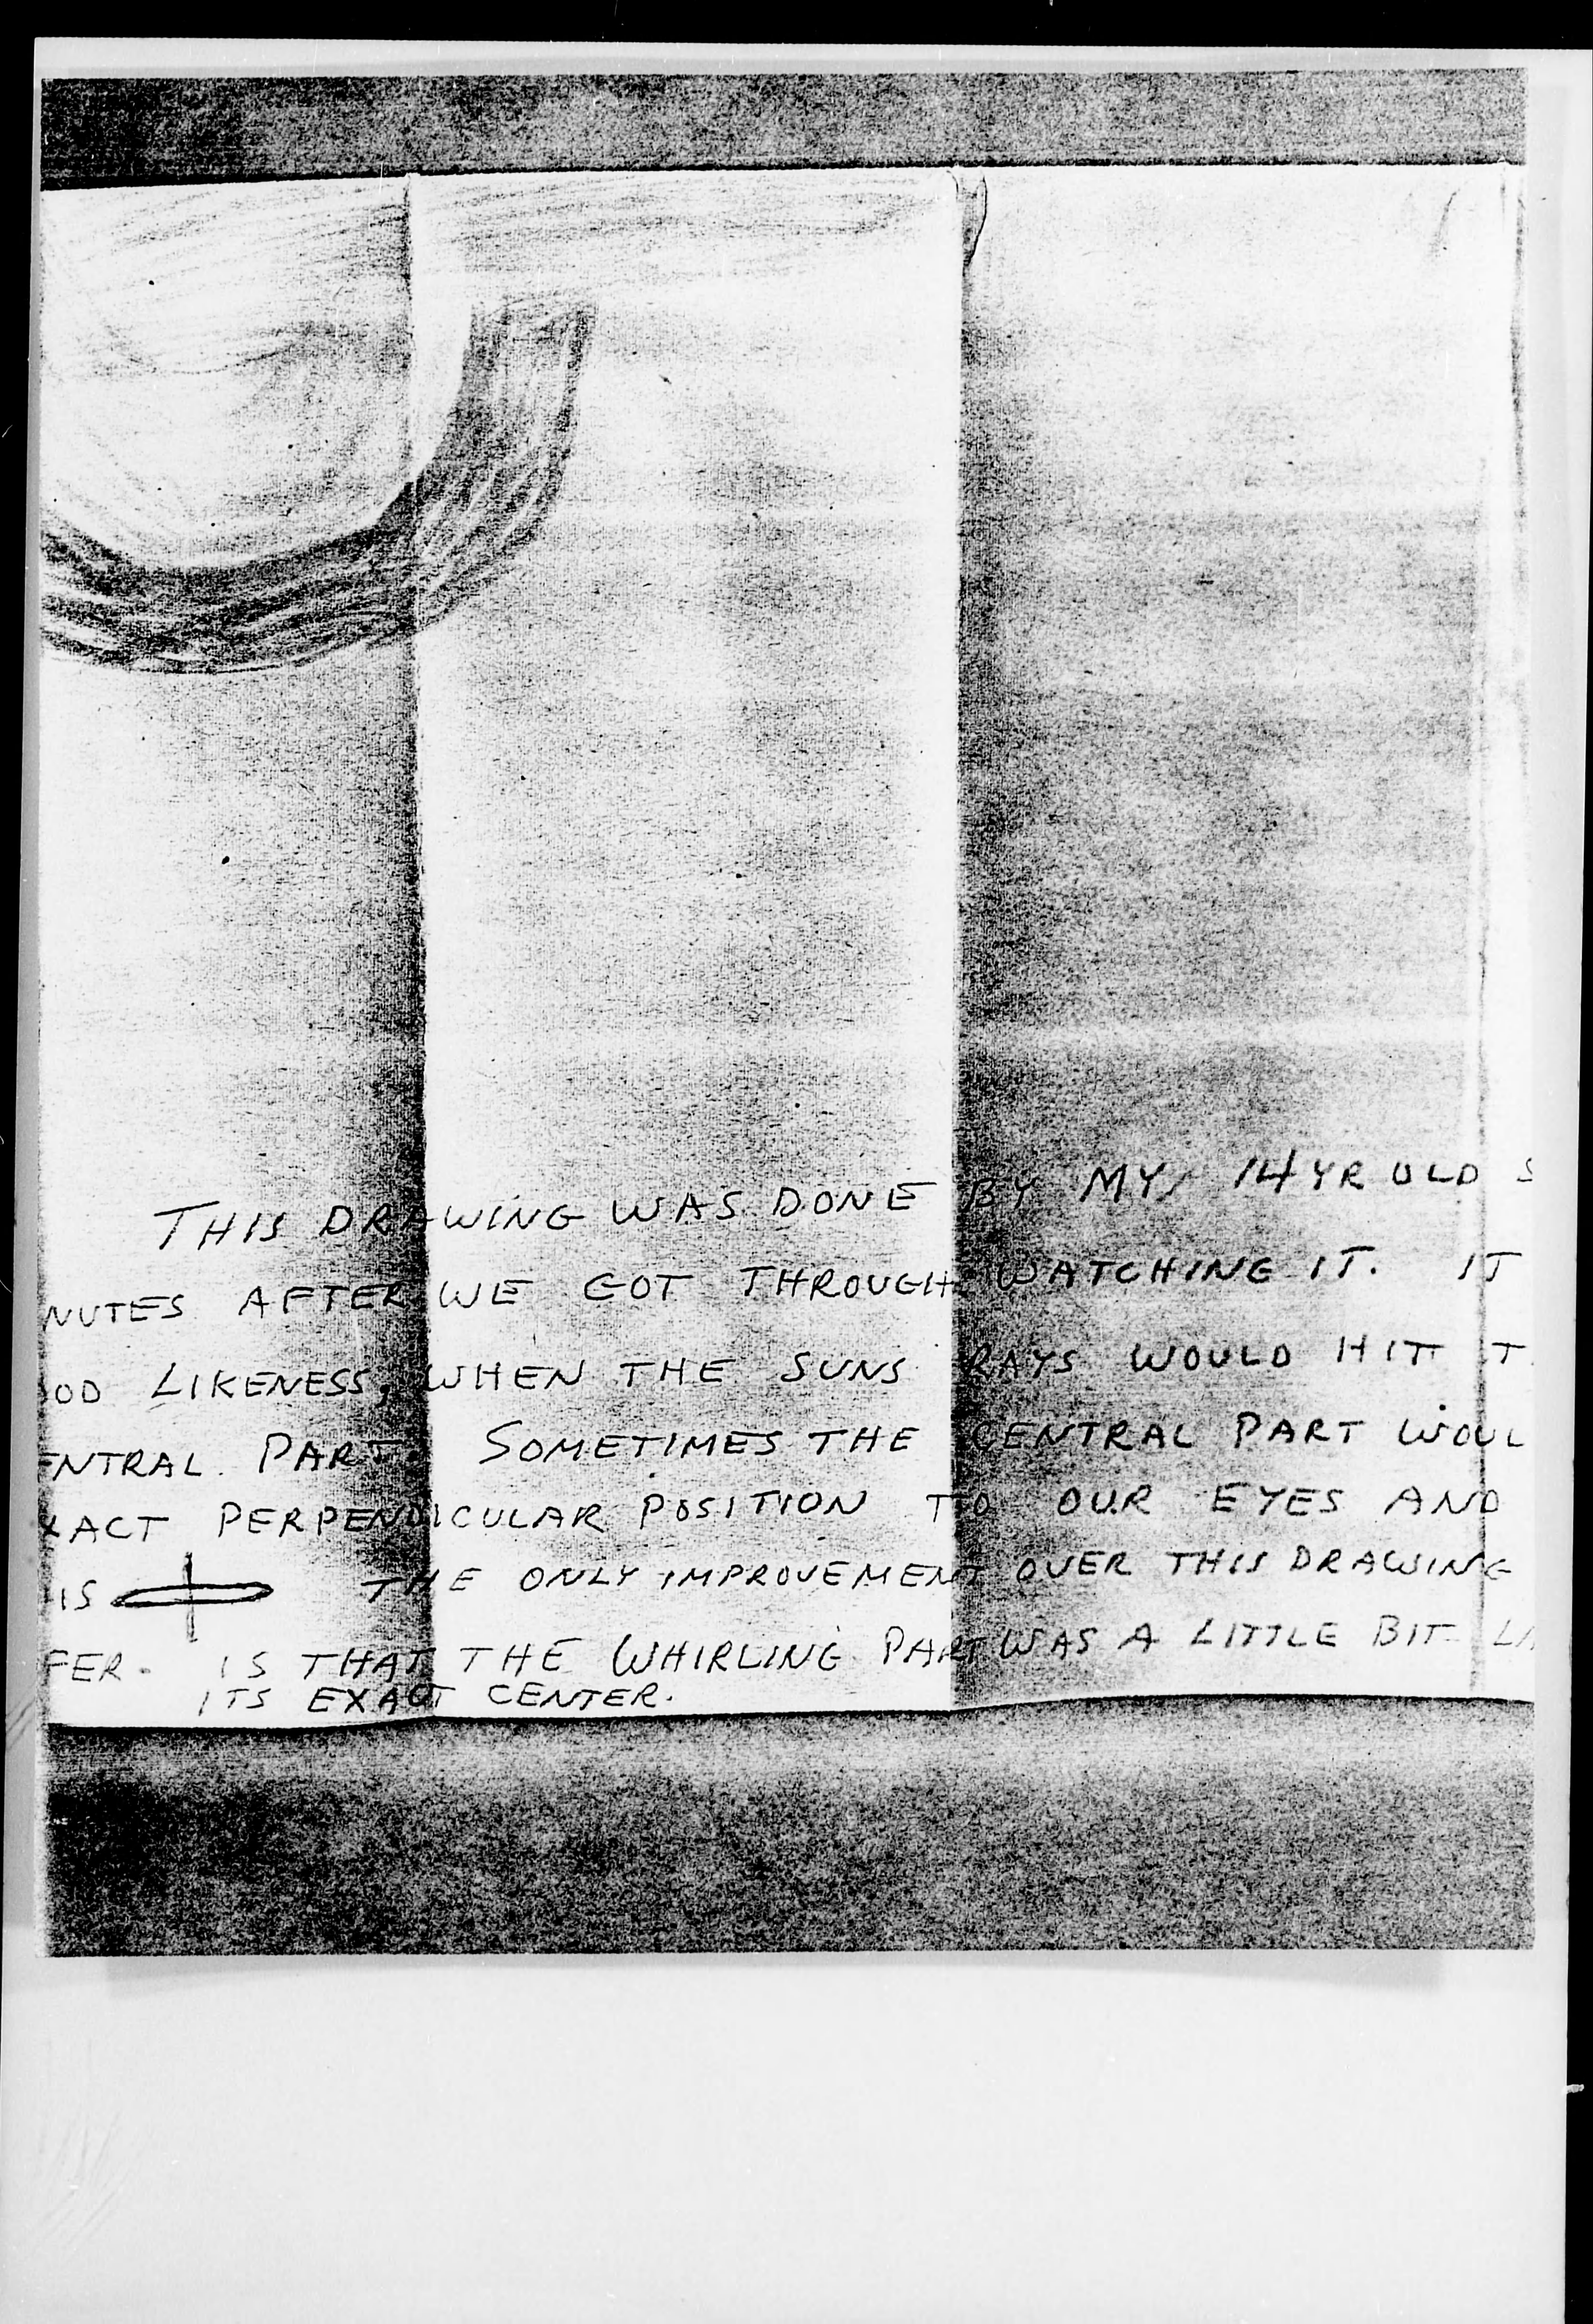 THIS DRAWING WAS DONE BY MY 14 YR OLD S
NUTES AFTER WE GOT THROUGH WATCHING IT. IT
OD LIKENESS, WHEN THE SUNS RAYS WOULD HIT T
ENTRAL PART. SOMETIMES THE CENTRAL PART WOUL
XACT PERPENDICULAR POSITION TO OUR EYES AND
IS THE ONLY IMPROVEMENT OVER THIS DRAWING
FER. IS THAT THE WHIRLING PART WAS A LITTLE BIT LA
ITS EXACT CENTER.